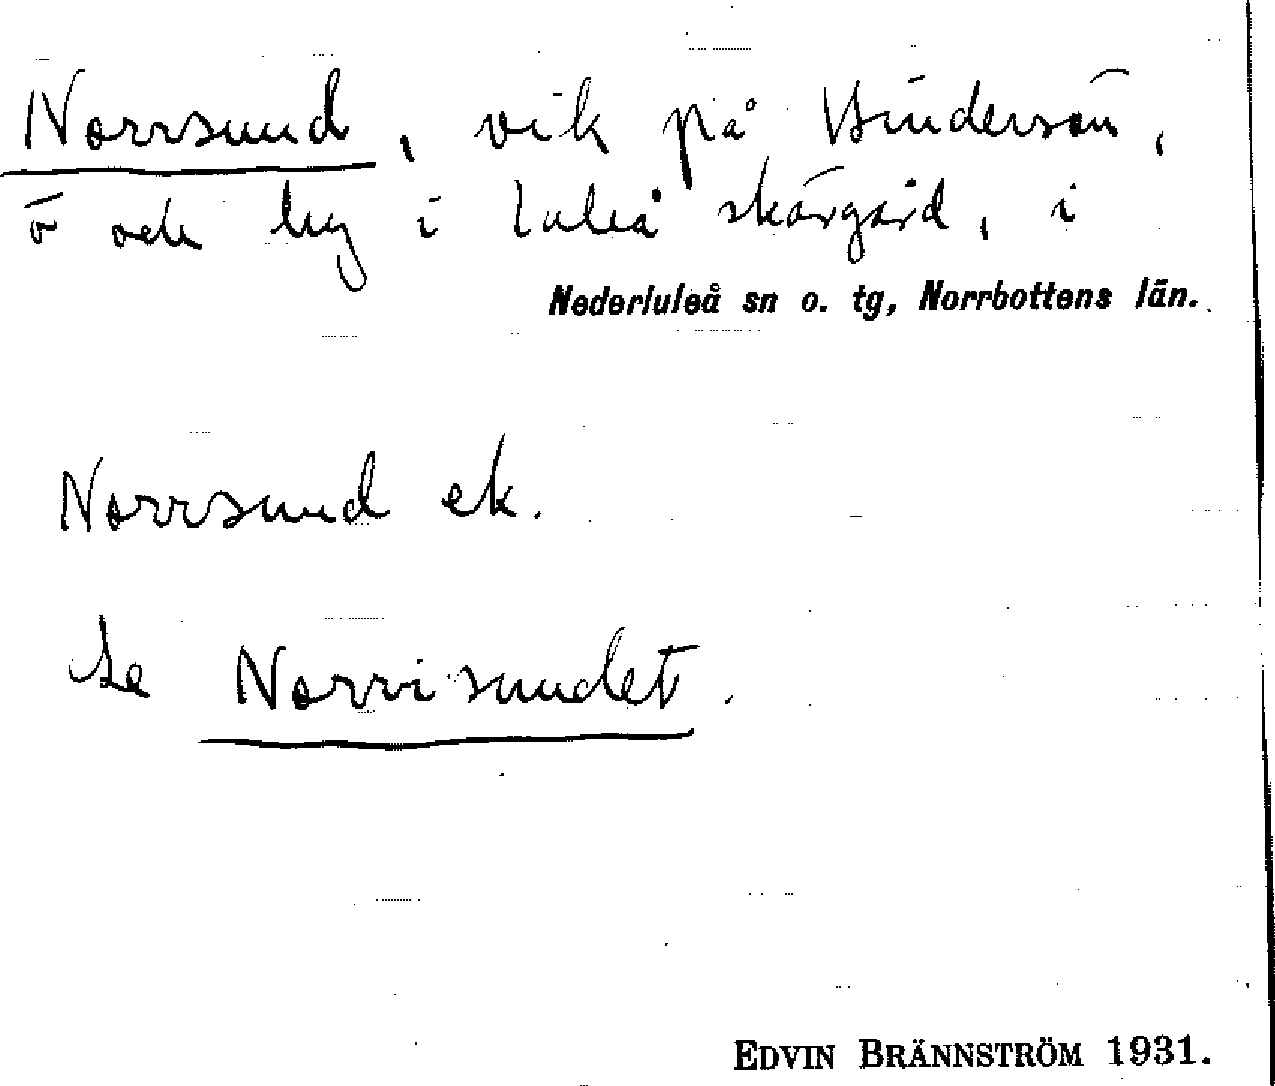 Norrsund, vik på Hindersön,
ö och by i Luleå skärgård, i
Nederluleå sn o. tg, Norrbottens län.
Norrsund ek.
Se Norrisundet.
EDVIN BRÄNNSTRÖM 1931.